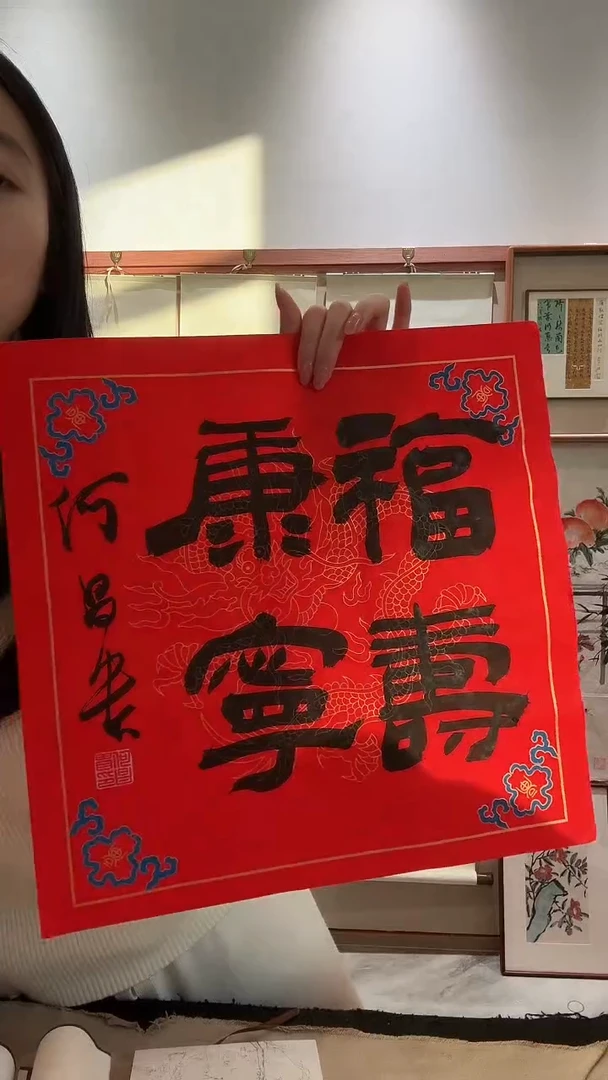 福壽
康寧
何昌贵